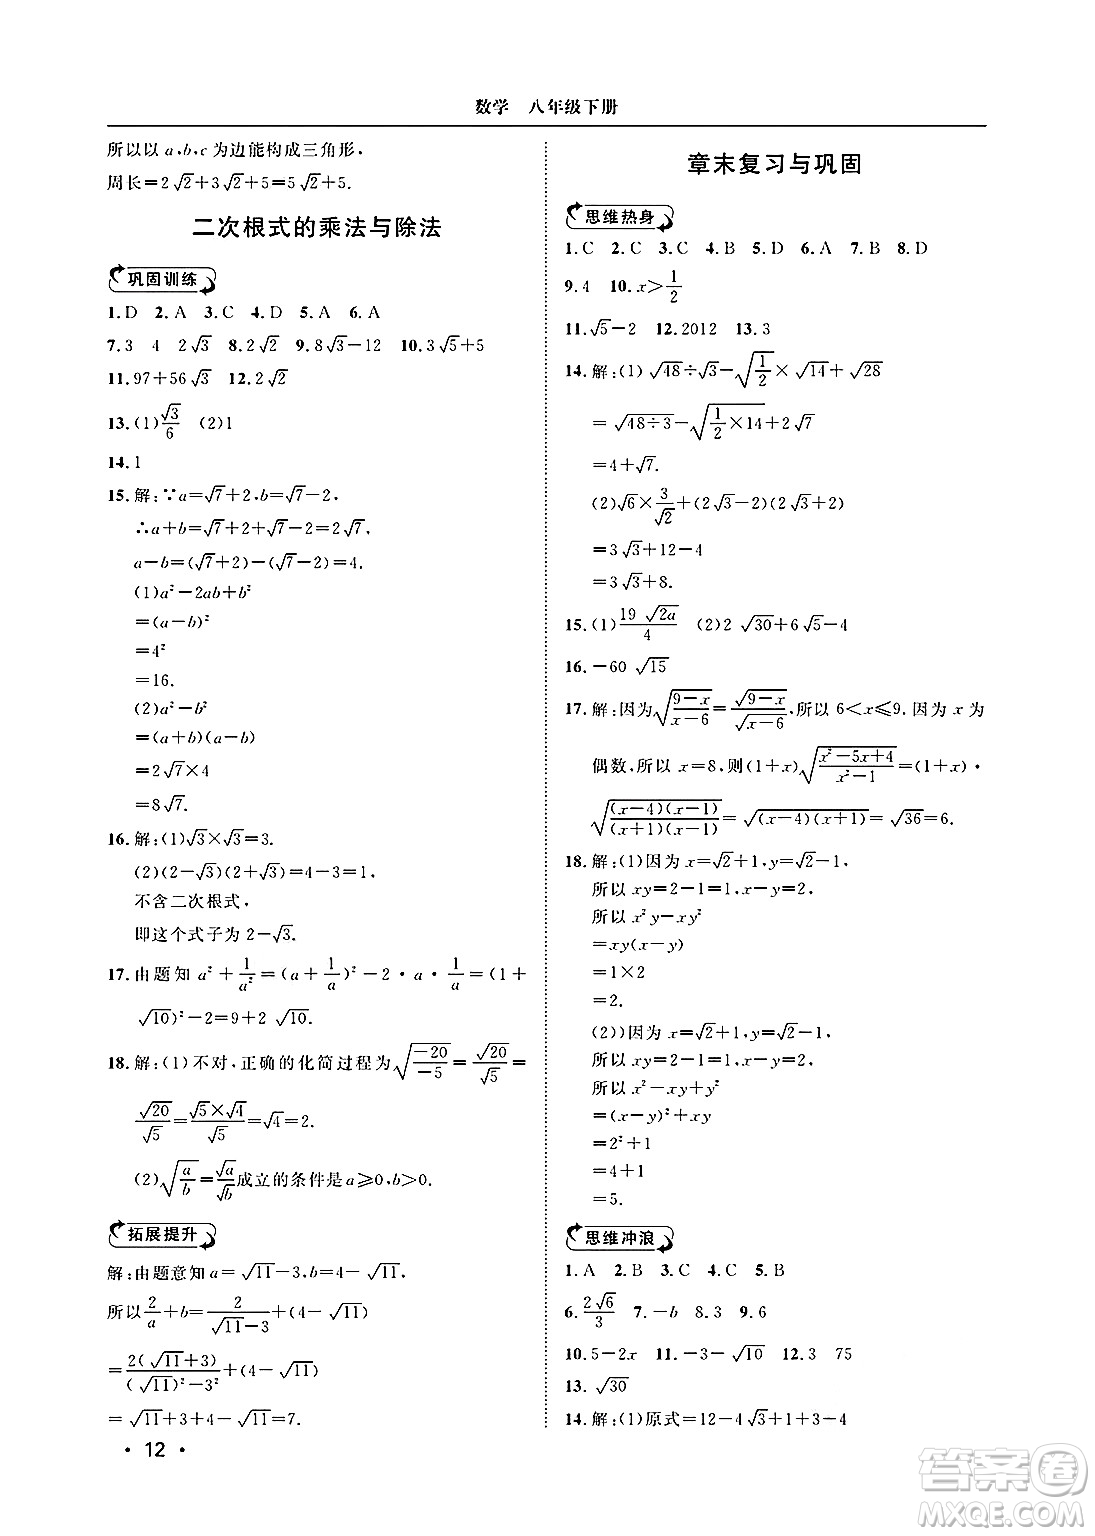 数学 八年级下册
所以以 a,b,c 为边能构成三角形,
周长=2√2+3√2+5=5√2+5.
二次根式的乘法与除法
巩固训练
1.D 2.A 3.C 4.D 5.A 6.A
7.3 4 2√3 8.2√2 9.8√3-12 10.3√5+5
11.97+56√3 12.2√2
13.(1)√3/6 (2)1
14.1
15.解:∵a=√7+2,b=√7-2,
∴a+b=√7+2+√7-2=2√7,
a-b=(√7+2)-(√7-2)=4.
(1)a²-2ab+b²
=(a-b)²
=4²
=16.
(2)a²-b²
=(a+b)(a-b)
=2√7×4
=8√7.
16.解:(1)√3×√3=3.
(2)(2-√3)(2+√3)=4-3=1,
不含二次根式,
即这个式子为 2-√3.
17.由题知 a²+1/a²=(a+1/a)²-2·a·1/a=(1+
√10)²-2=9+2√10.
18.解:(1)不对,正确的化简过程为√(-20/-5)=√20/√5=
√20/√5=√5×√4/√5=√4=2.
(2)√(a/b)=√a/√b成立的条件是 a≥0,b>0.
拓展提升
解:由题意知 a=√11-3,b=4-√11,
所以2/a+b=2/(√11-3)+(4-√11)
=2(√11+3)/((√11)²-3²)+(4-√11)
=√11+3+4-√11=7.
· 12 ·
章末复习与巩固
思维热身
1.C 2.C 3.C 4.B 5.D 6.A 7.B 8.D
9.4 10.x>1/2
11.√5-2 12.2012 13.3
14.解:(1)√48÷√3-√(1/2)×√14+√28
=√(48÷3)-√(1/2×14)+2√7
=4+√7.
(2)√6×3/√2+(2√3-2)(2√3+2)
=3√3+12-4
=3√3+8.
15.(1)19√2a/4 (2)2√30+6√5-4
16.-60√15
17.解:因为√((9-x)/(x-6))=√(9-x)/√(x-6),所以 6<x≤9.因为 x 为
偶数,所以 x=8,则(1+x)√((x²-5x+4)/(x²-1))=(1+x)·
√((x-4)(x-1)/((x+1)(x-1)))=√((x-4)(x+1))=√36=6.
18.解:(1)因为 x=√2+1,y=√2-1,
所以 xy=2-1=1,x-y=2,
所以 x²y-xy²
=xy(x-y)
=1×2
=2.
(2))因为 x=√2+1,y=√2-1,
所以 xy=2-1=1,x-y=2,
所以 x²-xy+y²
=(x-y)²+xy
=2²+1
=4+1
=5.
思维冲浪
1.A 2.B 3.C 4.C 5.B
6.2√6/3 7.-b 8.3 9.6
10.5-2x 11.-3-√10 12.3 75
13.√30
14.解:(1)原式=12-4√3+1+3-4
答案圈
MXQE.COM